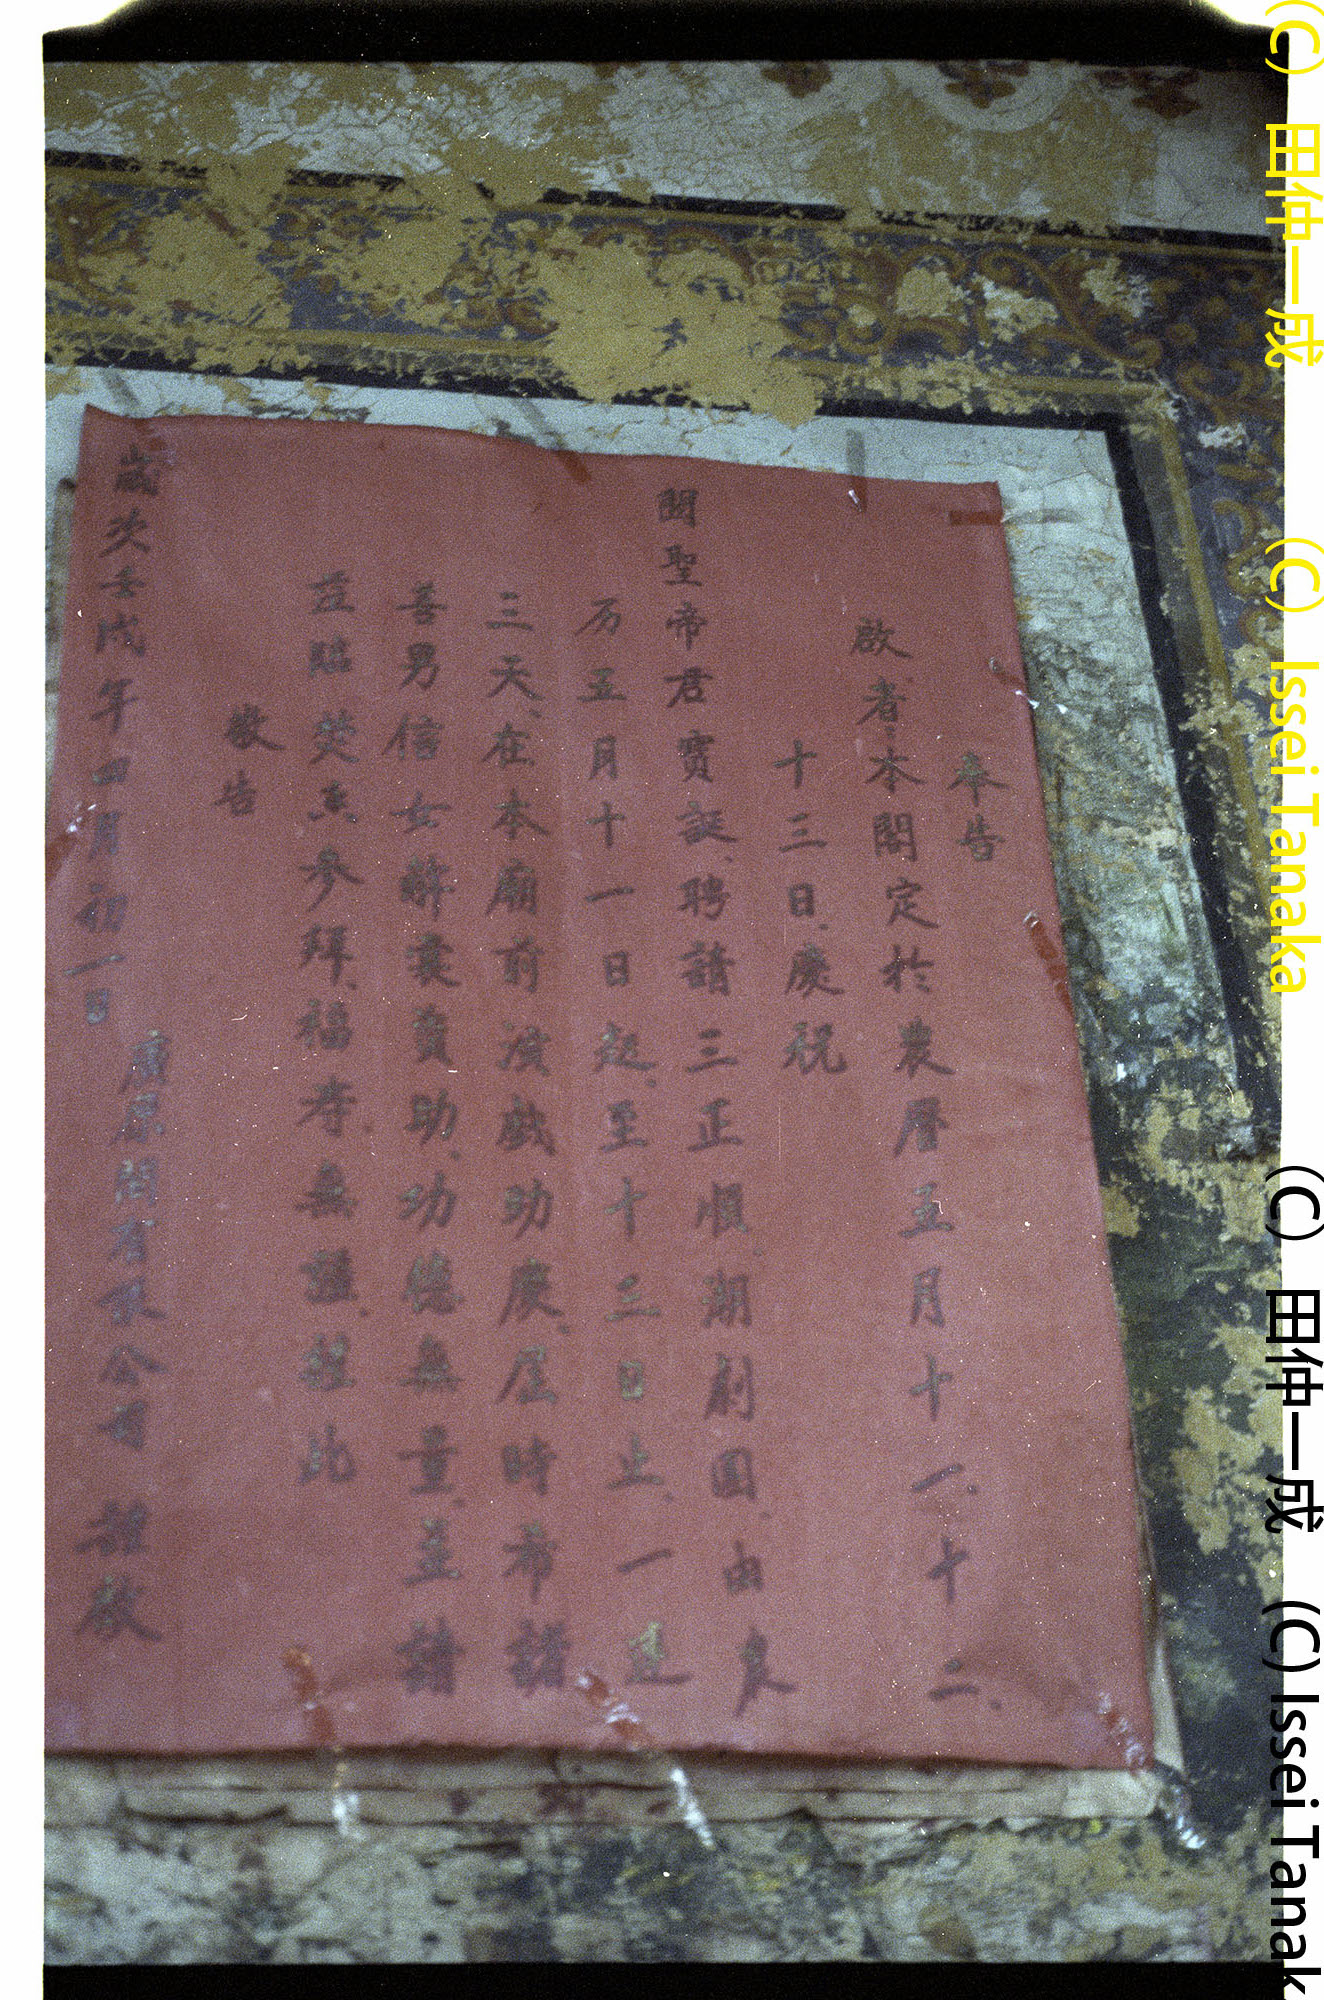 奉告
啟者，本閣定於農曆五月十一、十二、
十三日，慶祝
關聖帝君寶誕，聘請三正順潮劇團，由農
历五月十一日起，至十三日止，一連
三天，在本廟前演戲助慶，屆時希諸
善男信女解囊資助，功德無量，並請
蒞臨焚香參拜，福壽無疆，謹此
敬告
歲次壬戌年四月初一日
有限公司 謹啟
(C) 田仲一成 (C) Issei Tanaka
(C) 田仲一成 (C) Issei Tanak